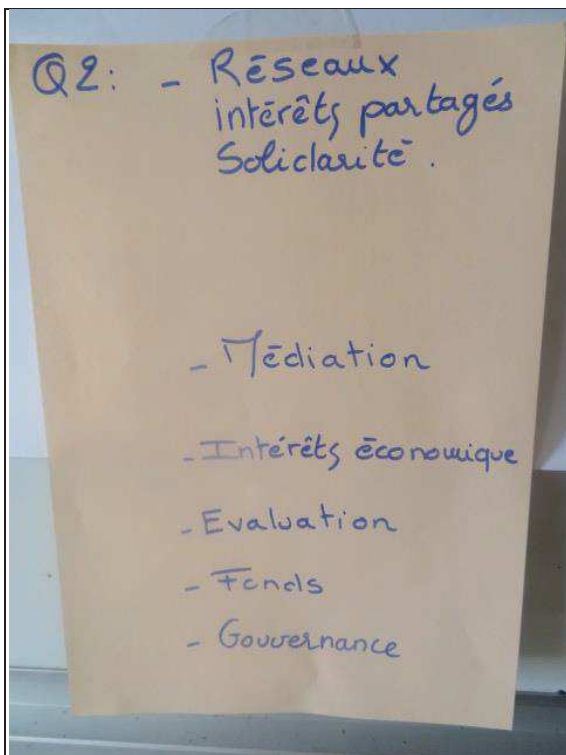 Q2: - Réseaux
intérêts partagés
Solidarité.
- Médiation
- Intérêts économique
- Evaluation
- Fonds
- Gouvernance